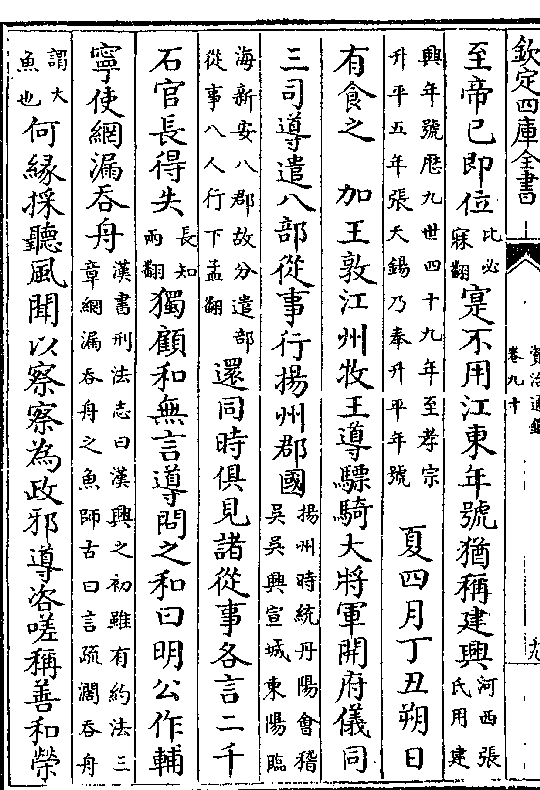 欽定四庫全書
資治通鑑
卷九十
至帝已即位比必寐翻寔不用江東年號猶稱建興河西張氏用建
興年號歴九世四十九年至孝宗升平五年張天錫乃奉升平年號 夏四月丁丑朔日
有食之 加王敦江州牧王導驃騎大將軍開府儀同
三司導遣八部從事行揚州郡國揚州時統丹陽會稽吳吳興宣城東陽臨
海新安八郡故分遣部從事八人行下孟翻還同時俱見諸從事各言二千
石官長得失長知兩翻獨顧和無言導問之和曰明公作輔
寧使網漏吞舟漢書刑法志曰漢興之初雖有約法三章網漏吞舟之魚師古曰言疏闊吞舟
謂大魚也何緣採聽風聞以察察為政邪導咨嗟稱善和榮